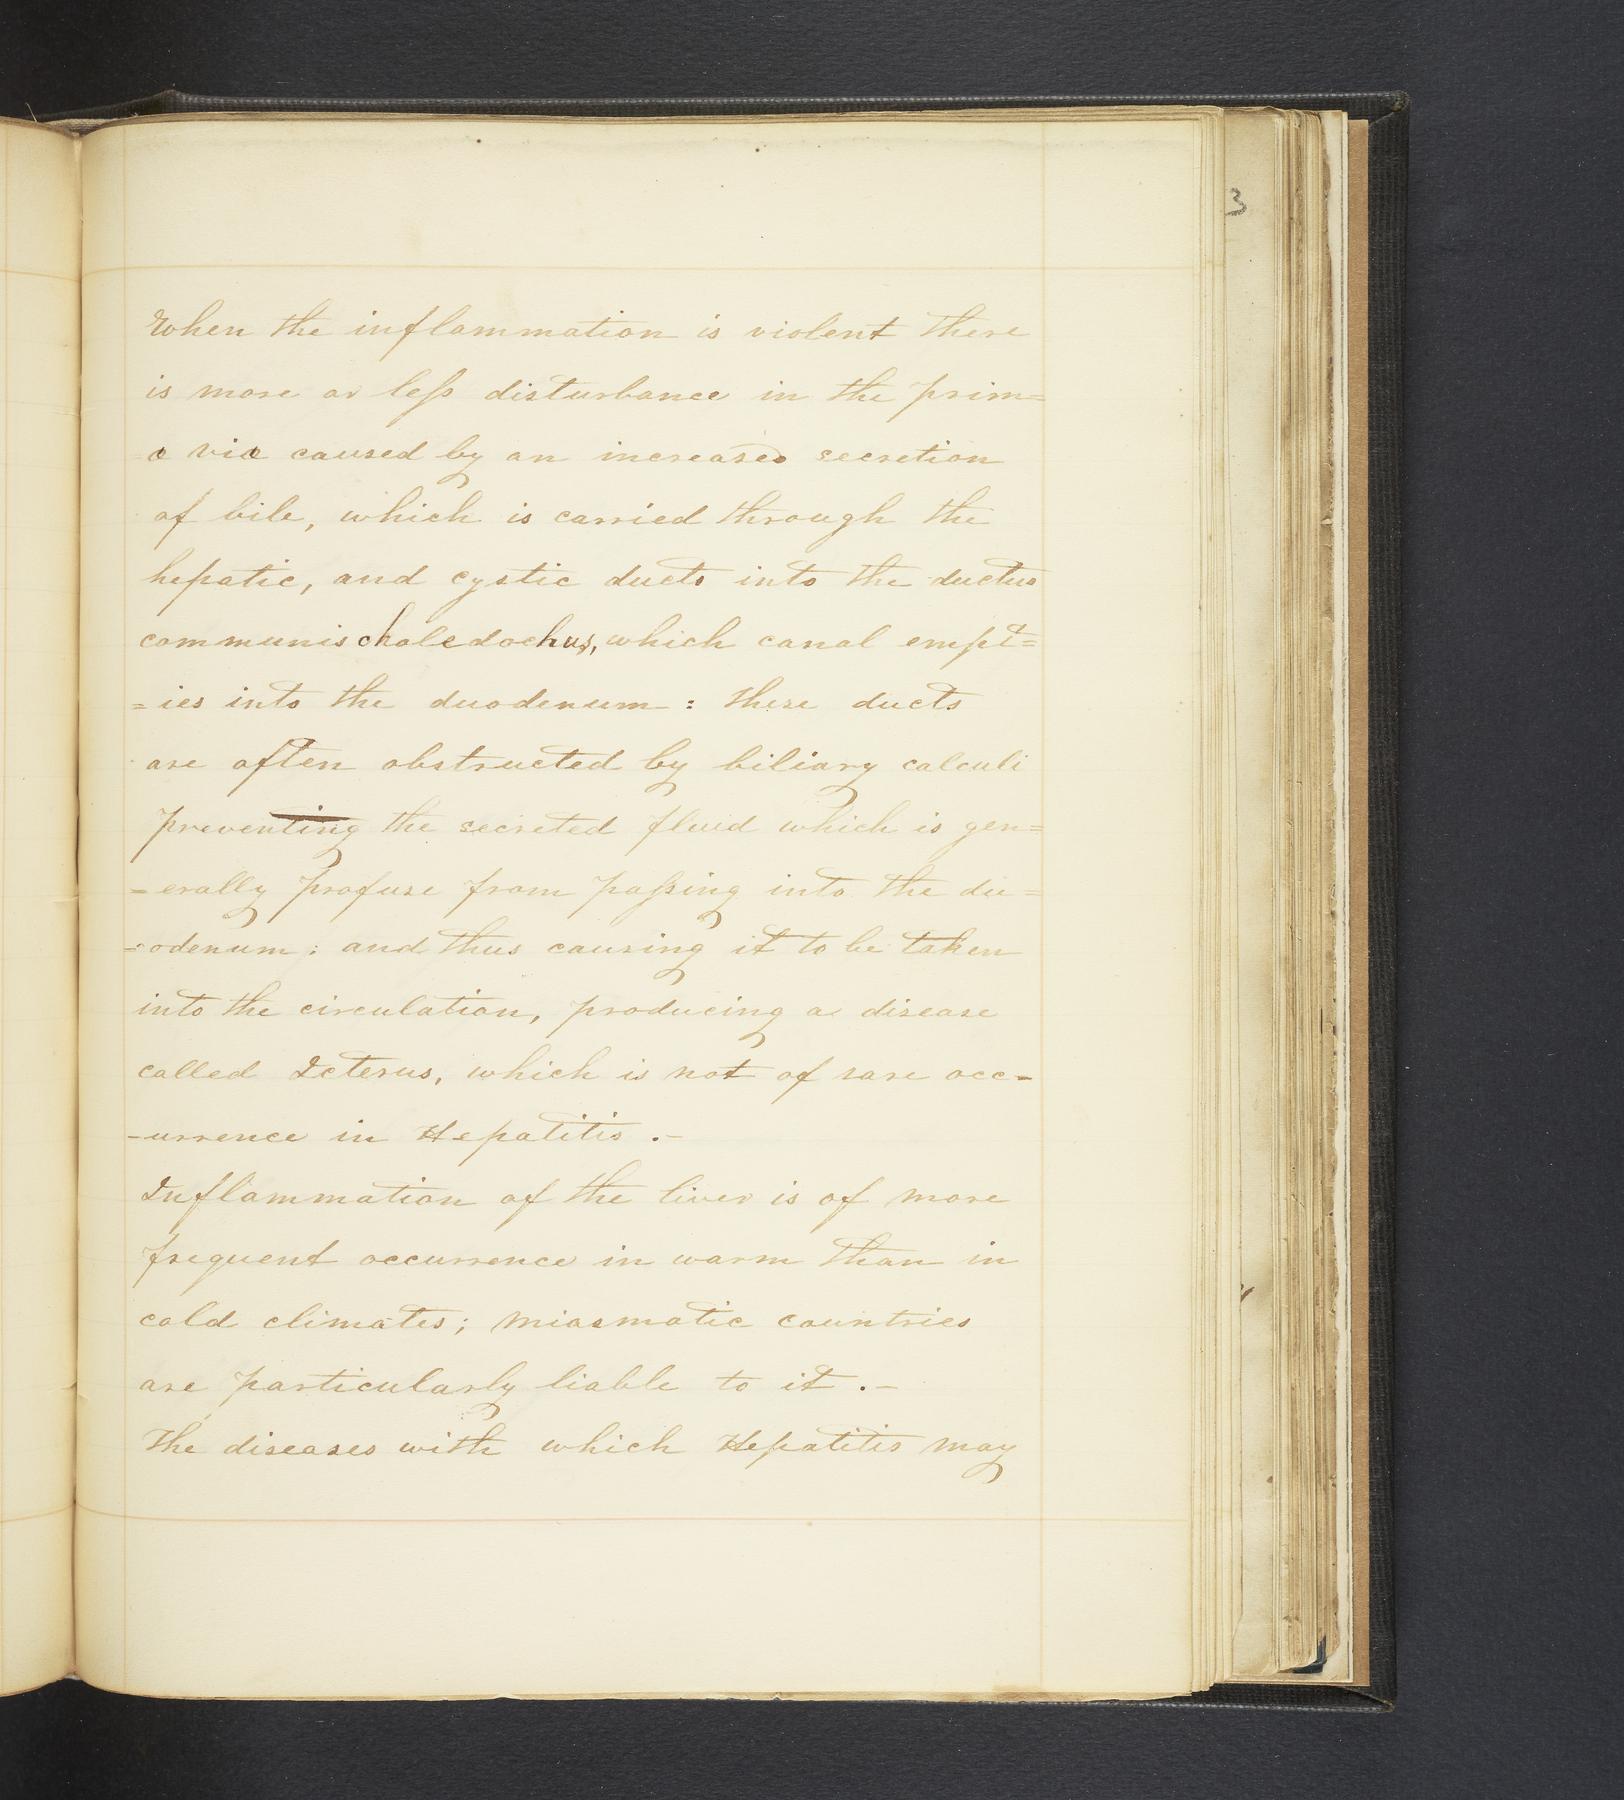 3
When the inflammation is violent there
is more or less disturbance in the prim=
a via caused by an increased secretion
of bile, which is carried through the
hepatic, and cystic ducts into the ductus
communis choledochus, which canal empt=
=ies into the duodenum : these ducts
are often obstructed by biliary calculi
preventing the secreted fluid which is gen=
=erally profuse from passing into the du=
=odenum ; and thus causing it to be taken
into the circulation, producing a disease
called Icterus, which is not of rare occ-
-urrence in Hepatitis .-
Inflammation of the liver is of more
frequent occurrence in warm than in
cold climates; miasmatic countries
are particularly liable to it .-
The diseases with which Hepatitis may